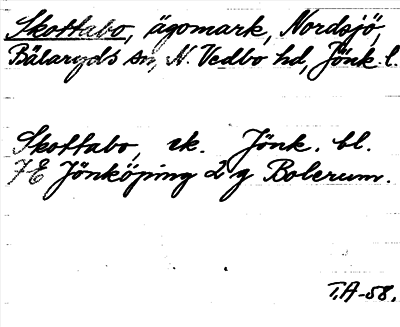 Skottabo, ägomark, Nordsjö,
Bälaryds sn, N. Vedbo hd, Jönk. l.
Skottabo, ek. Jönk. bl.
7E Jönköping 2 g Bolerum.
T.A-58.